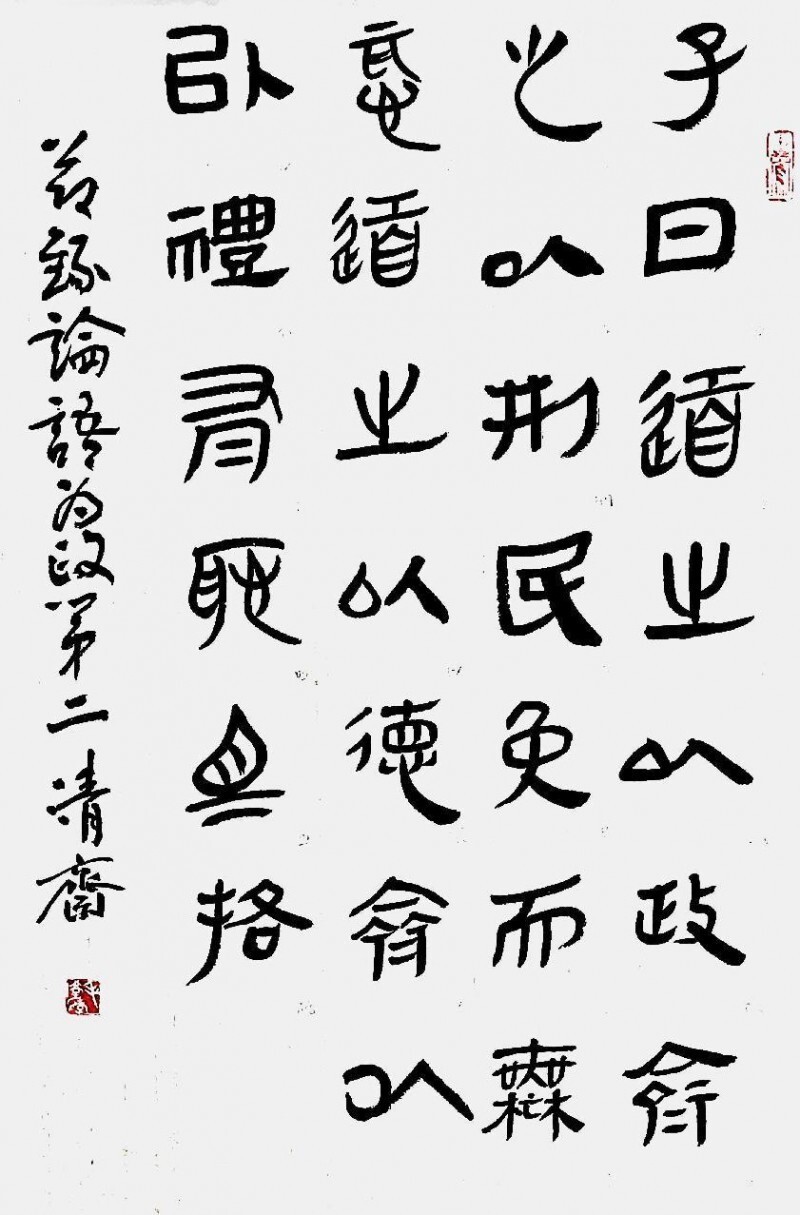 子曰道之以政齊
之以刑民免而無
恥道之以德齊以
以禮有恥且格
節錄論語為政第二清齋